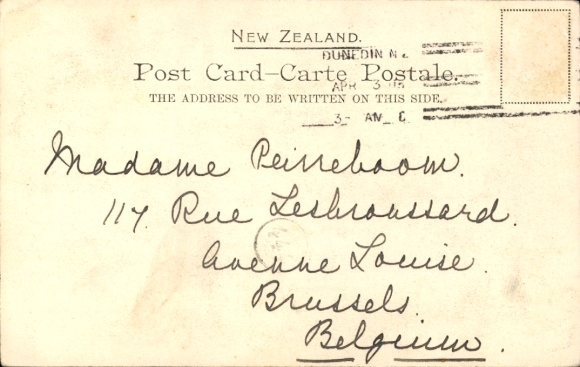 NEW ZEALAND.
DUNEDIN N.Z
Post Card–Carte Postale.
APR 3
THE ADDRESS TO BE WRITTEN ON THIS SIDE.
3- AM
Madame Peirreboom.
117. Rue Lesbroussard.
Avenue Louise.
Brussels.
Belgium.